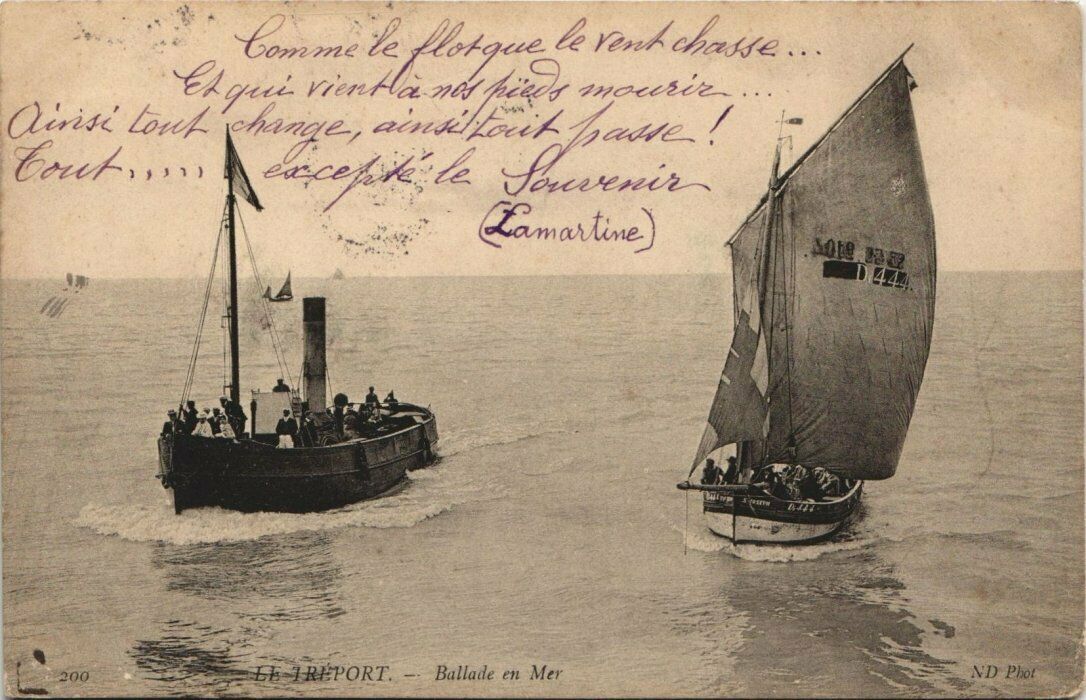 Comme le flot que le vent chasse...
Et qui vient à nos pieds mourir...
Ainsi tout change, ainsi tout passe !
Tout..... excepté le Souvenir
(Lamartine)
D.444.
St JOSEPH D.444
200 LE TRÉPORT. — Ballade en Mer ND Phot